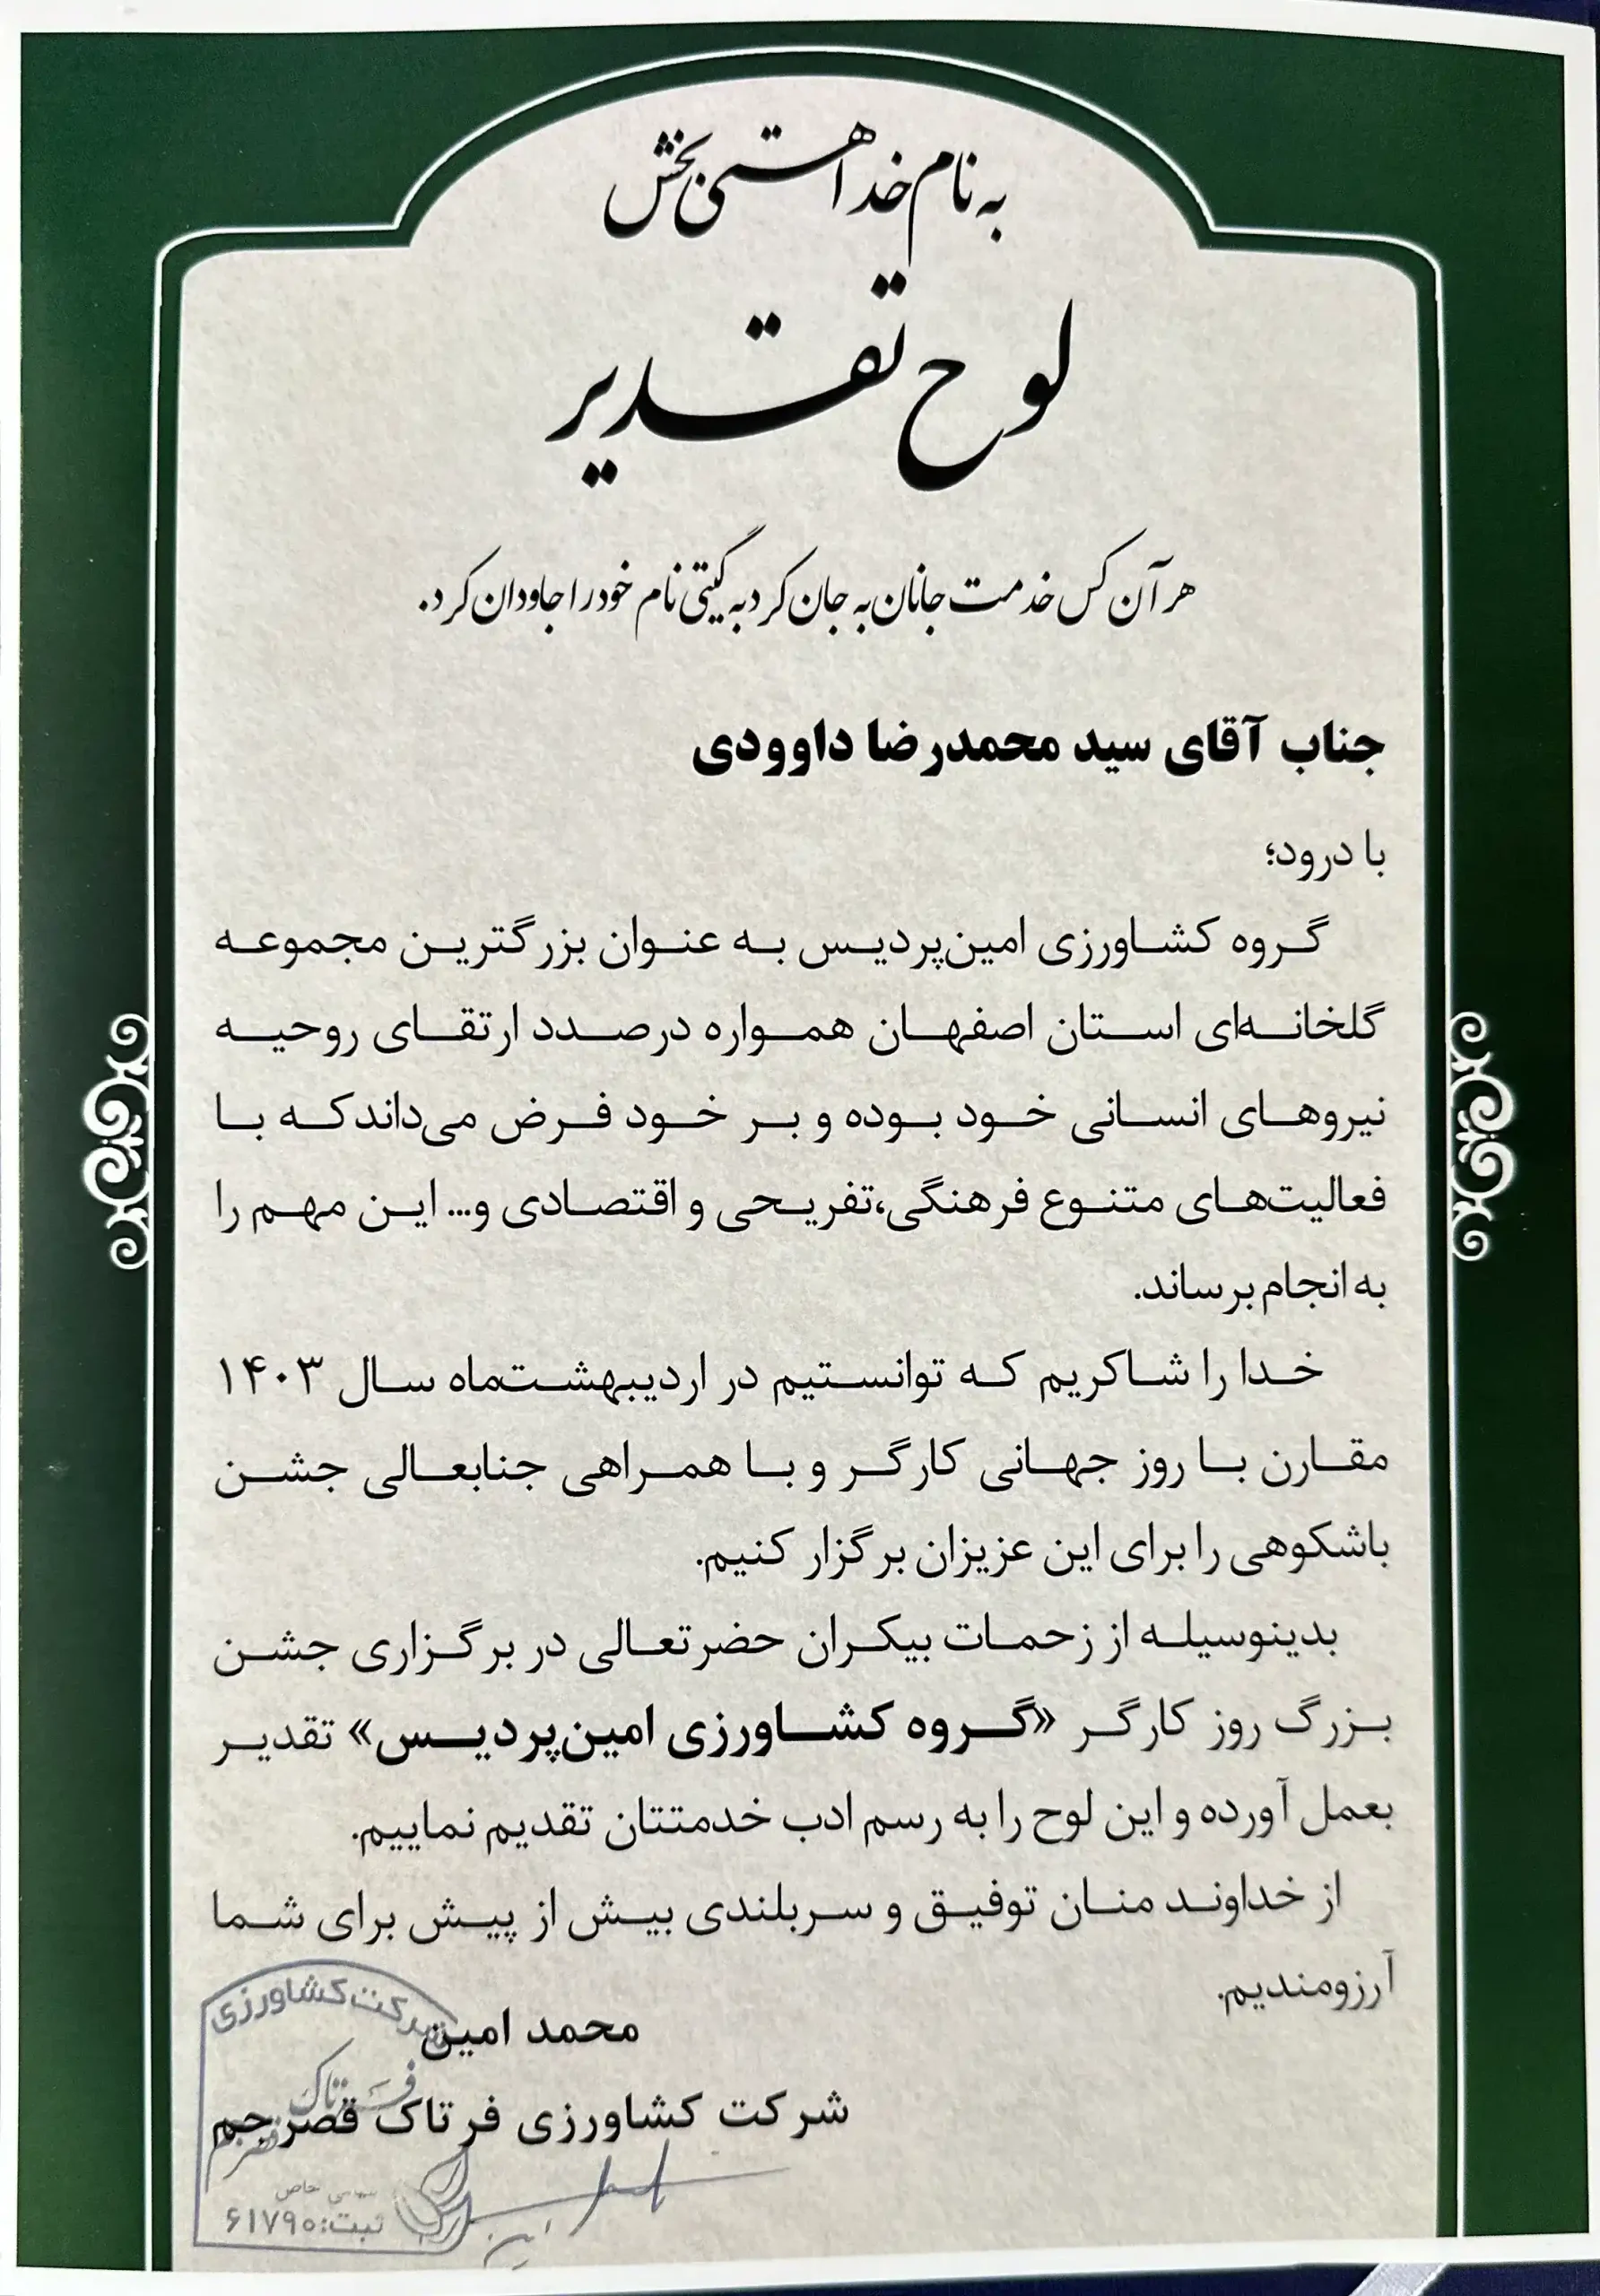 به نام خدا هستی بخش
لوح تقدیر
هر آن کس خدمت جانان به جان کرد به گیتی نام خود را جاودان کرد.
جناب آقای سید محمدرضا داوودی
با درود؛
گروه کشاورزی امین‌پردیس به عنوان بزرگترین مجموعه
گلخانه‌ای استان اصفهان همواره درصدد ارتقای روحیه
نیروهای انسانی خود بوده و بر خود فرض می‌داند که با
فعالیت‌های متنوع فرهنگی،تفریحی و اقتصادی و... این مهم را
به انجام برساند.
خدا را شاکریم که توانستیم در اردیبهشت‌ماه سال ۱۴۰۳
مقارن با روز جهانی کارگر و با همراهی جنابعالی جشن
باشکوهی را برای این عزیزان برگزار کنیم.
بدینوسیله از زحمات بیکران حضرتعالی در برگزاری جشن
بزرگ روز کارگر «گروه کشاورزی امین‌پردیس» تقدیر
بعمل آورده و این لوح را به رسم ادب خدمتتان تقدیم نماییم.
از خداوند منان توفیق و سربلندی بیش از پیش برای شما
آرزومندیم.
محمد امین
شرکت کشاورزی فرتاک قصرجم
شرکت کشاورزی
فرتاک
خاص
ثبت: ۶۱۷۹۰